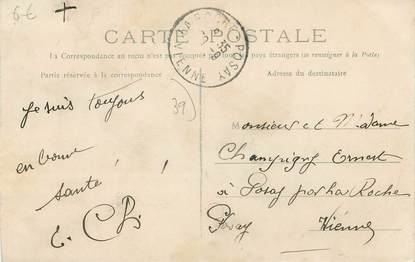 6€
CARTE POSTALE
La Correspondance au recto n'est pas acceptée par tous les pays étrangers (se renseigner à la Poste)
Partie réservée à la correspondance
Adresse du destinataire
LA ROCHE-POSAY
VIENNE
39
Je suis toujours
en bonne
santé !
Monsieur et Madame
Champigny Ernest
à Posay par La Roche
Posay Vienne